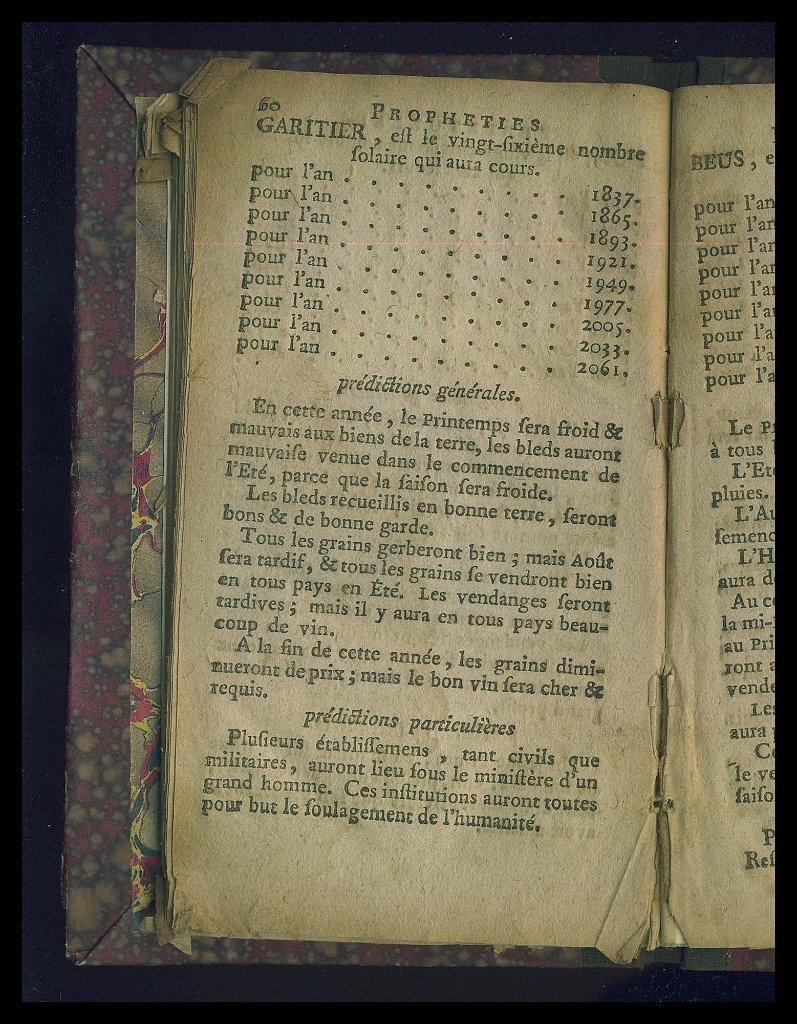 60
PROPHETIES
GARITIER, eſt le vingt-ſixième nombre
ſolaire qui aura cours.
pour l'an . . . . . . . . 1837.
pour l'an . . . . . . . . 1865.
pour l'an . . . . . . . . 1893.
pour l'an . . . . . . . . 1921.
pour l'an . . . . . . . . 1949.
pour l'an . . . . . . . . 1977.
pour l'an . . . . . . . . 2005.
pour l'an . . . . . . . . 2033.
pour l'an . . . . . . . . 2061.
prédictions générales.
En cette année, le Printemps ſera froid &
mauvais aux biens de la terre, les bleds auront
mauvaiſe venue dans le commencement de
l'Eté, parce que la ſaiſon ſera froide.
Les bleds recueillis en bonne terre, ſeront
bons & de bonne garde.
Tous les grains gerberont bien ; mais Août
ſera tardif, & tous les grains ſe vendront bien
en tous pays en Été. Les vendanges ſeront
tardives ; mais il y aura en tous pays beau-
coup de vin.
A la fin de cette année, les grains dimi-
nueront de prix ; mais le bon vin ſera cher &
requis.
prédictions particulières
Pluſieurs établiſſemens, tant civils que
militaires, auront lieu ſous le miniſtère d'un
grand homme. Ces inſtitutions auront toutes
pour but le ſoulagement de l'humanité.
BEUS, e
pour l'an
pour l'an
pour l'an
pour l'a
pour l'a
pour l'a
pour l'a
pour l'a
pour l'a
Le P
à tous
L'Eté
pluies.
L'Au
ſemenc
L'H
aura d
Au co
la mi-
au Pri
ront a
vende
Les
aura
Ce
le ve
ſaiſo
P
Reſ